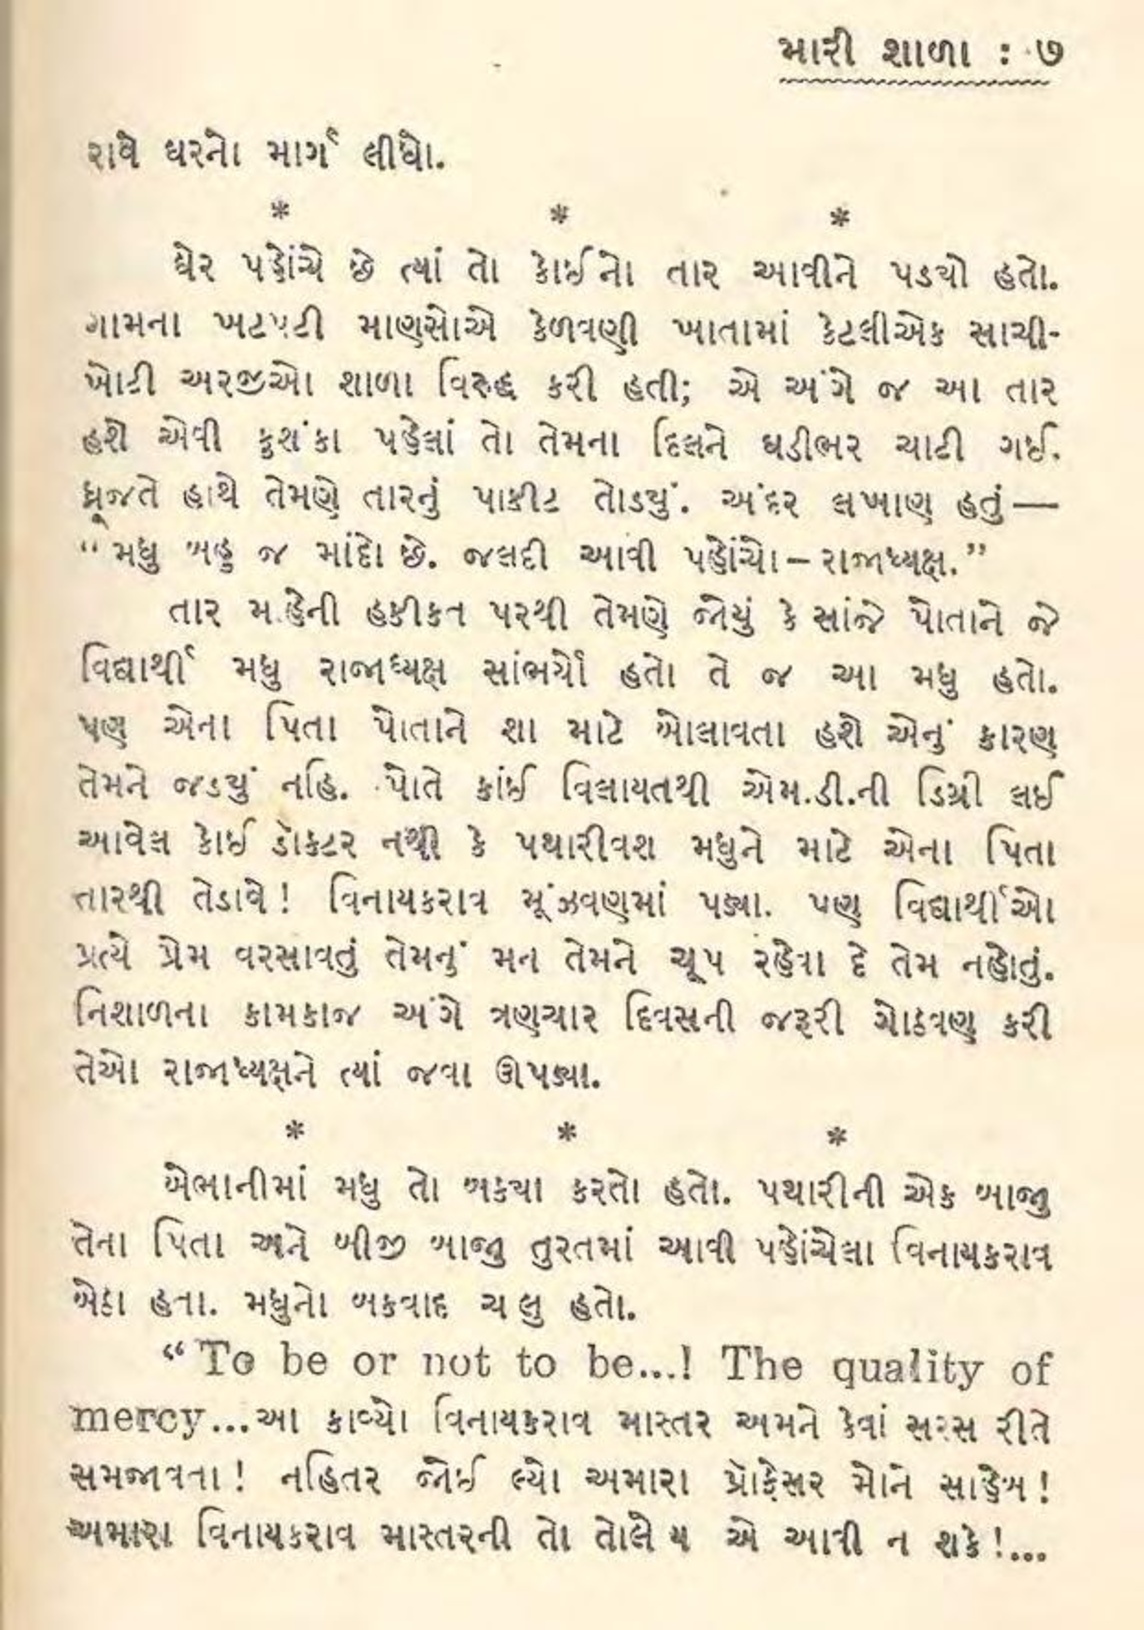 મારી શાળા : ૭
રાવે ઘરનો માર્ગ લીધો.
* * *
ઘેર પહોંચે છે ત્યાં તો કોઈનો તાર આવીને પડ્યો હતો.
ગામના ખટપટી માણસોએ કેળવણી ખાતામાં કેટલીએક સાચી-
ખોટી અરજીઓ શાળા વિરુદ્ધ કરી હતી; એ અંગે જ આ તાર
હશે એવી કુશંકા પહેલાં તો તેમના દિલને ઘડીભર ચાટી ગઈ.
ધ્રૂજતે હાથે તેમણે તારનું પાકીટ તોડ્યું. અંદર લખાણ હતું—
“મધુ બહુ જ માંદો છે. જલદી આવી પહોંચો – રાજાધ્યક્ષ.”
તાર મ.હેની હકીકત પરથી તેમણે જોયું કે સાંજે પોતાને જે
વિદ્યાર્થી મધુ રાજાધ્યક્ષ સાંભર્યો હતો તે જ આ મધુ હતો.
પણ એના પિતા પોતાને શા માટે બોલાવતા હશે એનું કારણ
તેમને જડ્યું નહિ. પોતે કાંઈ વિલાયતથી એમ.ડી.ની ડિગ્રી લઈ
આવેલ કોઈ ડૉક્ટર નથી કે પથારીવશ મધુને માટે એના પિતા
તારથી તેડાવે! વિનાયકરાવ મૂંઝવણમાં પડ્યા. પણ વિદ્યાર્થીઓ
પ્રત્યે પ્રેમ વરસાવતું તેમનું મન તેમને ચૂપ રહેવા દે તેમ નહોતું.
નિશાળના કામકાજ અંગે ત્રણચાર દિવસની જરૂરી ગોઠવણ કરી
તેઓ રાજાધ્યક્ષને ત્યાં જવા ઊપડ્યા.
* * *
બેભાનીમાં મધુ તો બક્યા કરતો હતો. પથારીની એક બાજુ
તેના પિતા અને બીજી બાજુ તુરતમાં આવી પહોંચેલા વિનાયકરાવ
બેઠા હતા. મધુનો બકવાદ ચ લુ હતો.
“To be or not to be...! The quality of
mercy...આ કાવ્યો વિનાયકરાવ માસ્તર અમને કેવાં સરસ રીતે
સમજાવતા! નહિતર જોઈ લ્યો અમારા પ્રોફેસર મોને સાહેબ!
અમારા વિનાયકરાવ માસ્તરની તો તોલે ય એ આવી ન શકે!...